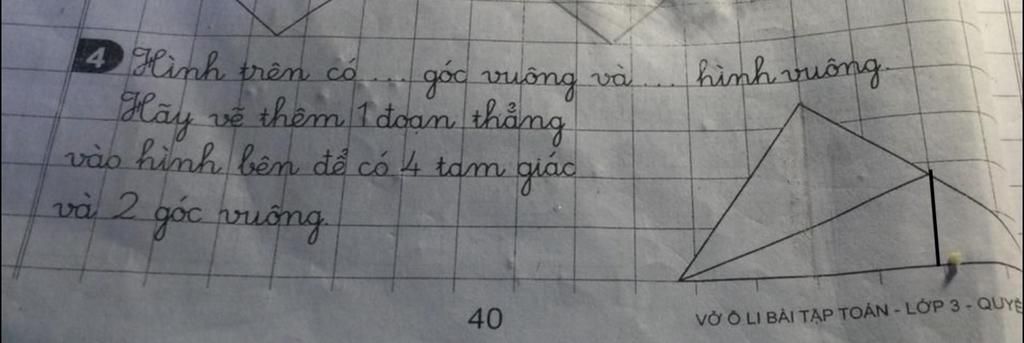 4 Hình trên có ... góc vuông và ... hình vuông.
Hãy vẽ thêm 1 đoạn thẳng
vào hình bên để có 4 tam giác
và 2 góc vuông.
40
VỞ Ô LI BÀI TẬP TOÁN - LỚP 3 - QUYỂ